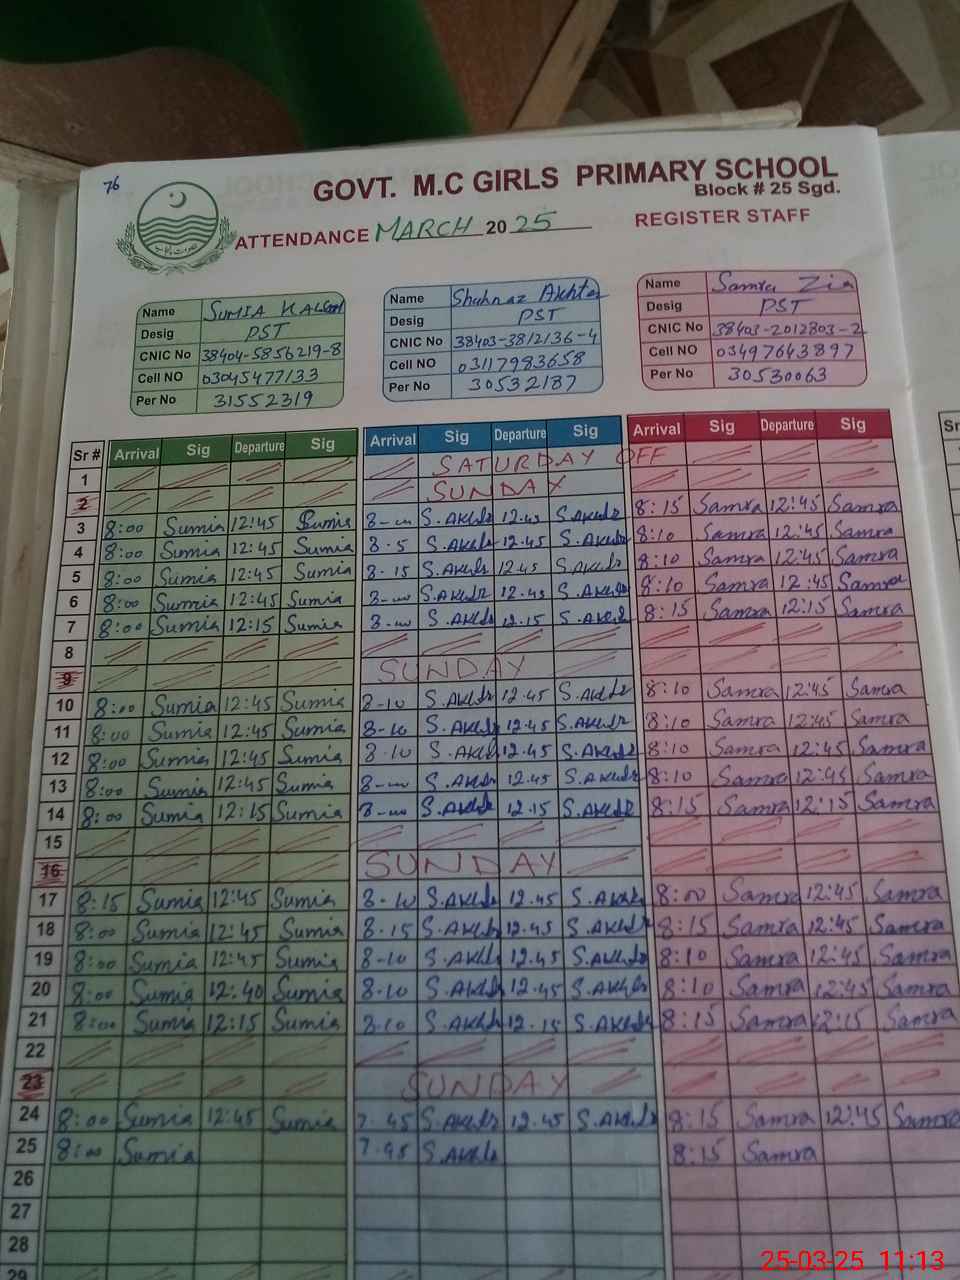 76
GOVT. M.C GIRLS PRIMARY SCHOOL
Block # 25 Sgd.
ATTENDANCE MARCH 2025 REGISTER STAFF
Name SUMIA KALSOOM
Desig PST
CNIC No 38404-5856219-8
Cell NO 03045477133
Per No 31552319
Name Shahnaz Akhtar
Desig PST
CNIC No 38403-3812136-4
Cell NO 03117983658
Per No 30532187
Name Samra Zia
Desig PST
CNIC No 38403-2012803-2
Cell NO 03497643897
Per No 30530063
Sr # Arrival Sig Departure Sig Arrival Sig Departure Sig Arrival Sig Departure Sig Sr
1 SATURDAY OFF
2 SUNDAY
3 8:00 Sumia 12:45 Sumia 8-00 S.Akhtr 12.45 S.Akhtr 8:15 Samra 12:45 Samra
4 8:00 Sumia 12:45 Sumia 8-5 S.Akhtr 12.45 S.Akhtr 8:10 Samra 12:45 Samra
5 8:00 Sumia 12:45 Sumia 8-15 S.Akhtr 12.45 S.Akhtr 8:10 Samra 12:45 Samra
6 8:00 Sumia 12:45 Sumia 8-00 S.Akhtr 12.45 S.Akhtr 8:10 Samra 12:45 Samra
7 8:00 Sumia 12:15 Sumia 8-00 S.Akhtr 12.15 S.Akhtr 8:15 Samra 12:15 Samra
8
9 SUNDAY
10 8:00 Sumia 12:45 Sumia 8-10 S.Akhtr 12.45 S.Akhtr 8:10 Samra 12:45 Samra
11 8:00 Sumia 12:45 Sumia 8-10 S.Akhtr 12.45 S.Akhtr 8:10 Samra 12:45 Samra
12 8:00 Sumia 12:45 Sumia 8-10 S.Akhtr 12.45 S.Akhtr 8:10 Samra 12:45 Samra
13 8:00 Sumia 12:45 Sumia 8-00 S.Akhtr 12.45 S.Akhtr 8:10 Samra 12:45 Samra
14 8:00 Sumia 12:15 Sumia 8-00 S.Akhtr 12.15 S.Akhtr 8:15 Samra 12:15 Samra
15
16 SUNDAY
17 8:15 Sumia 12:45 Sumia 8-10 S.Akhtr 12.45 S.Akhtr 8:00 Samra 12:45 Samra
18 8:00 Sumia 12:45 Sumia 8-15 S.Akhtr 12.45 S.Akhtr 8:15 Samra 12:45 Samra
19 8:00 Sumia 12:45 Sumia 8-10 S.Akhtr 12.45 S.Akhtr 8:10 Samra 12:45 Samra
20 8:00 Sumia 12:40 Sumia 8-10 S.Akhtr 12.45 S.Akhtr 8:10 Samra 12:45 Samra
21 8:00 Sumia 12:15 Sumia 8.10 S.Akhtr 12.15 S.Akhtr 8:15 Samra 12:15 Samra
22
23 SUNDAY
24 8:00 Sumia 12:45 Sumia 7.45 S.Akhtr 12.45 S.Akhtr 8:15 Samra 12:45 Samra
25 8:00 Sumia 7.45 S.Akhtr 8:15 Samra
26
27
28
29
25-03-25 11:13